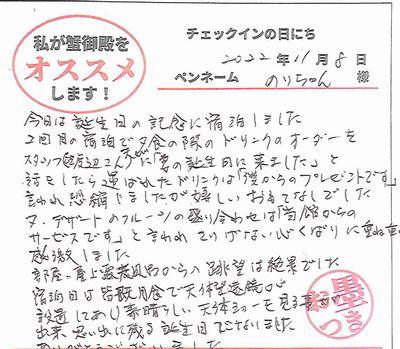 私が蟹御殿を
オススメ
します!
チェックインの日にち
2022年11月8日
ペンネーム のりちゃん 様
今日は誕生日の記念に宿泊しました
2回目の宿泊で夕食の際のドリンクのオーダーを
スタッフ渡辺さんに「妻の誕生日に来ました」と
話をしたら運ばれたドリンクは「僕からのプレゼントです」
言われ恐縮しましたが嬉しいおもてなしでした
又、デザートのフルーツの盛り合わせは「当館からの
サービスです」と言われ さりげない心くばりに重ね重ね
感激しました
部屋、屋上露天風呂からの眺望は絶景でした
宿泊日は皆既月食で天体望遠鏡が
設置にあり素晴らしい天体ショーを見る事が
出来、思い出に残る誕生日でなりました
ありがとうございました
お墨つき